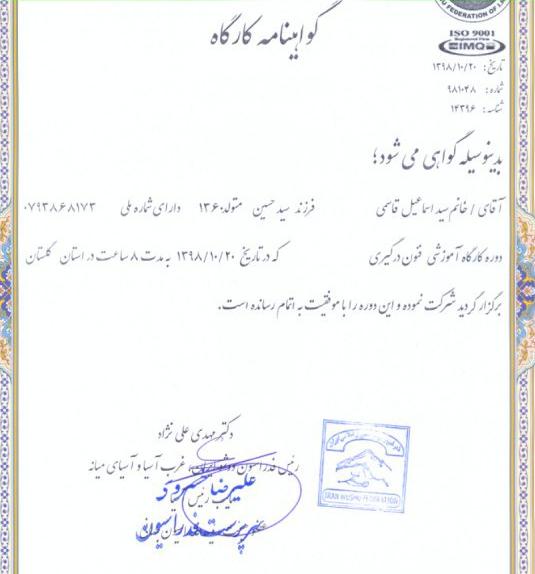 گواهینامه کارگاه
U FEDERATION OF I.
ISO 9001
IMQ
تاریخ: ۱۳۹۸/۱۰/۲۰
شماره: ۹۸۱۰۴۸
شناسه: ۱۴۳۹۶
بدینوسیله گواهی می شود؛
آقای / خانم سید اسماعیل قاسمی فرزند سید حسین متولد ۱۳۶۰ دارای شماره ملی ۰۷۹۳۸۶۸۱۷۳
دوره کارگاه آموزشی فنون درگیری که در تاریخ ۱۳۹۸/۱۰/۲۰ به مدت ۸ ساعت در استان گلستان
برگزار گردید شرکت نموده و این دوره را با موفقیت به اتمام رسانده است.
دکتر مهدی علی نژاد
رئیس فدراسیون ووشو ایران، غرب آسیا و آسیای میانه
علیرضا سرود
نایب رئیس
سرپرست فدراسیون
IRAN WUSHU FEDERATION